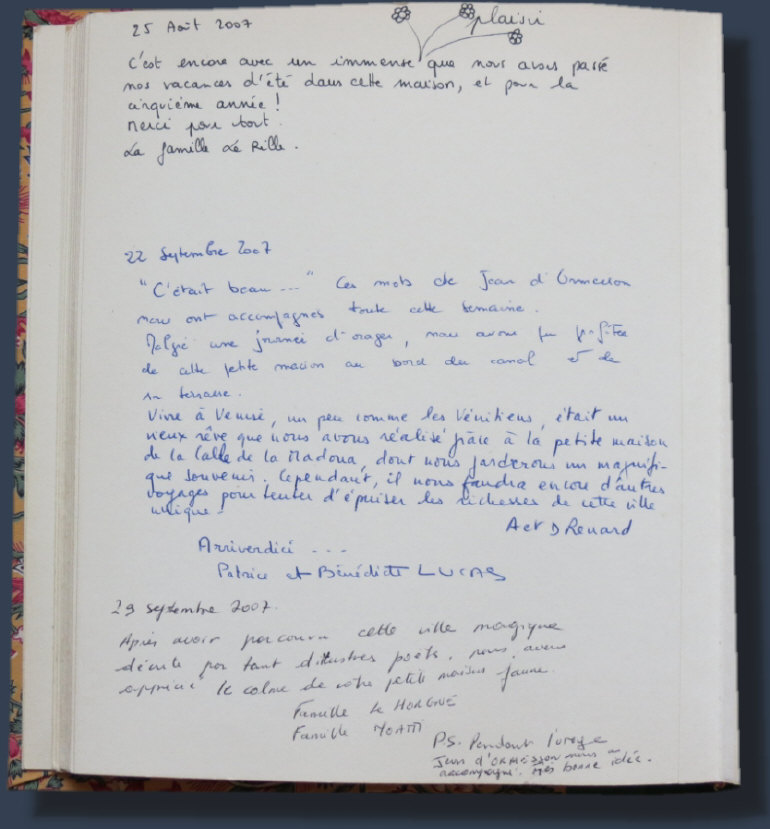 25 Août 2007
plaisir
C'est encore avec un immense que nous avons passé
nos vacances d'été dans cette maison, et pour la
cinquième année !
Merci pour tout.
La famille Le Rille.
22 Septembre 2007
"C'était beau ..." Ces mots de Jean d'Ormesson
nous ont accompagnés toute cette semaine.
Malgré une journée d'orages, nous avons pu profiter
de cette petite maison au bord du canal et de
sa terrasse.
Vivre à Venise, un peu comme les Vénitiens, était un
vieux rêve que nous avons réalisé grâce à la petite maison
de la Calle de la Madona, dont nous garderons un magnifi-
que souvenir. Cependant, il nous faudra encore d'autres
voyages pour tenter d'épuiser les richesses de cette ville
unique.
A et D Renard
Arriverdici ...
Patrice et Bénédicte LUCAS
29 septembre 2007.
Après avoir parcouru cette ville magique
décrite par tant d'illustres poètes, nous avons
apprécié le calme de votre petite maison jaune.
Famille Le
Famille
PS. Pendant l'orage
Jean d'ORMESSON nous a
accompagné. Très bonne idée.